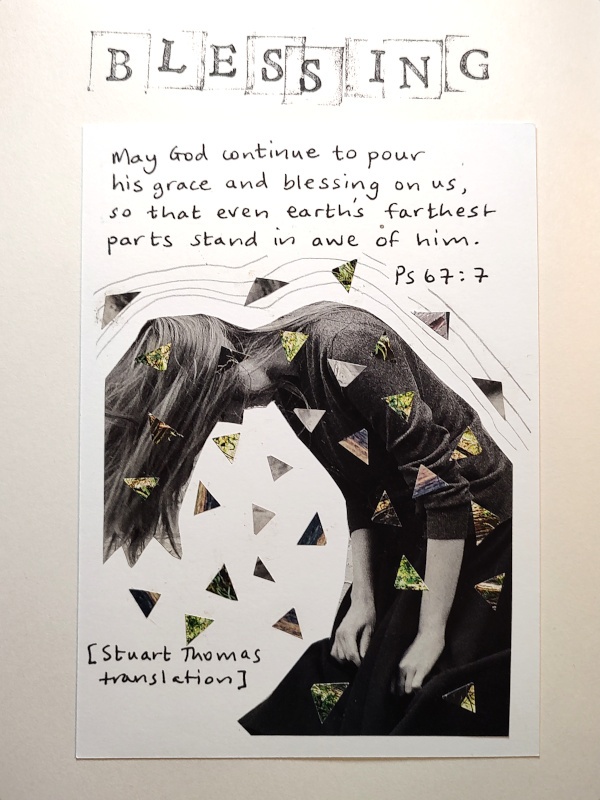 BLESSING
May God continue to pour
his grace and blessing on us,
so that even earth's farthest
parts stand in awe of him.
Ps 67:7
[Stuart Thomas
translation]